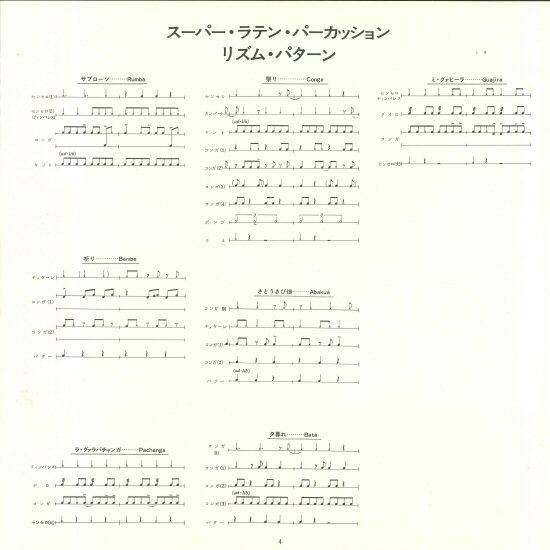 スーパー・ラテン・パーカッション
リズム・パターン
サブローソ………Rumba
センセロ(1)
センセロ(2)
(ティンバレス)
コンガ
カント
祭り…………Conga
センセロ
カンパーナ
カント
コンガ(1)
コンガ(2)
コンガ(3)
コンガ(4)
ボンゴ
ミ・グァヒーラ………Guajira
センセロ
ティンバレス
グイロ
コンガ
祈り…………Bemba
チェケーレ
コンガ(1)
コンガ(2)
バター
さとうきび畑………Abakuá
コンガ
チェケーレ
コンガ(1)
コンガ(2)
バター
ラ・グァラパチャンガ………Pachanga
ティンバレス
グイロ
コンガ
夕暮れ………Batá
コンガ
コンガ(1)
コンガ(2)
コンガ(3)
バター
4